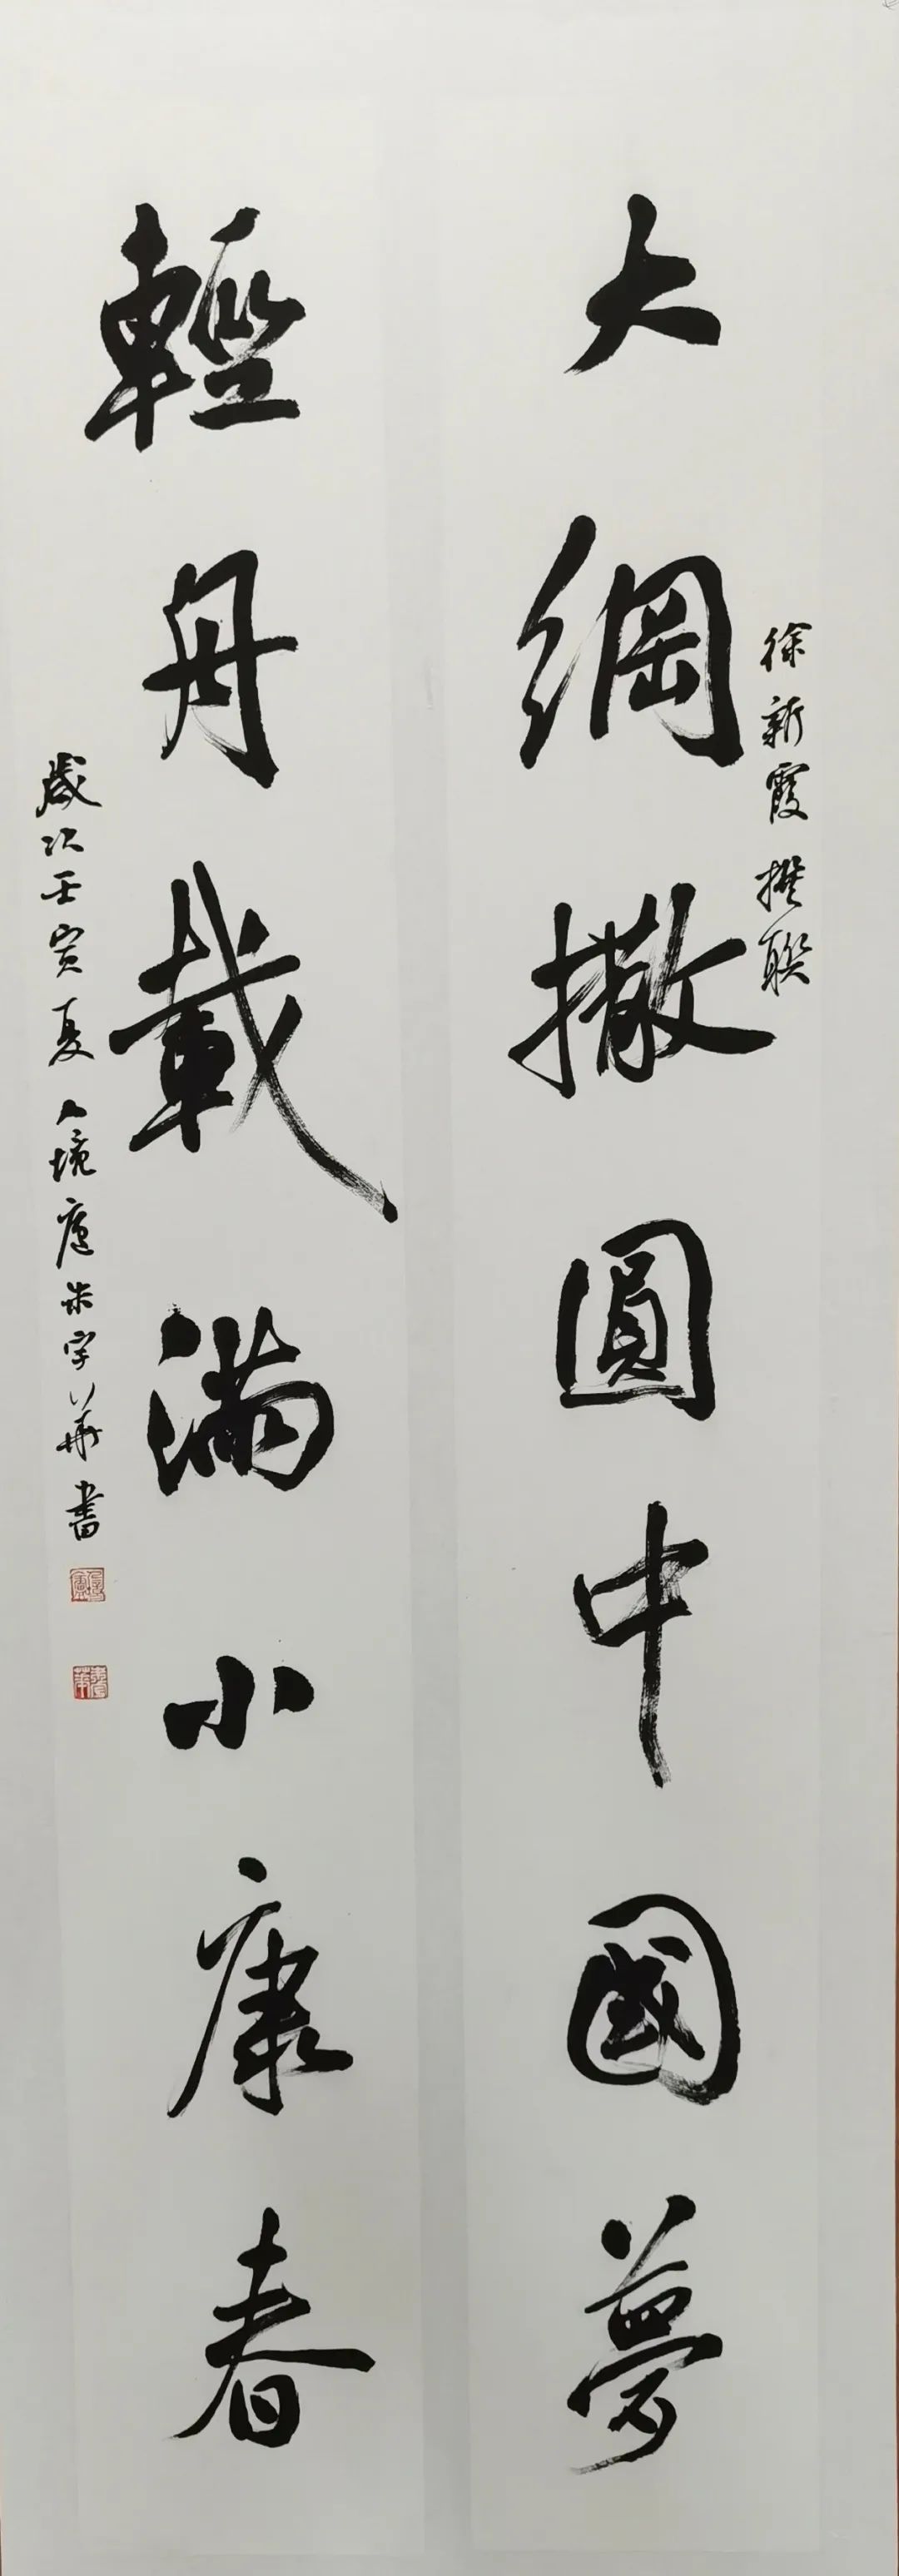 大綱撒圓中國夢
徐新霞撰聯
輕舟載滿小康春
歲次壬寅夏人境廬朱宇華書